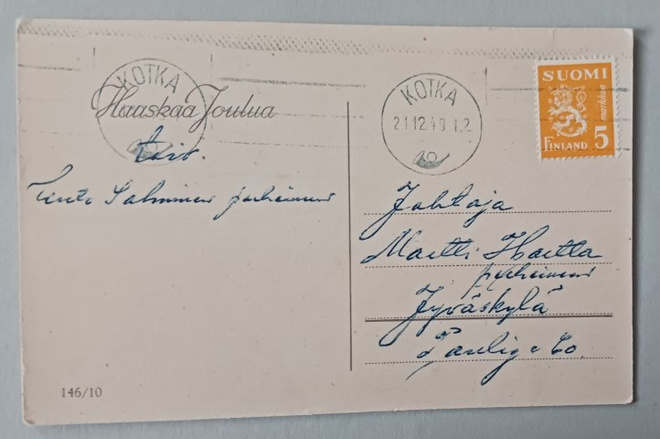 KOTKA
Hauskaa Joulua
toiv.
Salminen perheineen
KOTKA
21.12.49 12
SUOMI
markkaa
FINLAND 5
Johtaja
Martti Hartta
perheineen
Jyväskylä
Paulig & Co.
146/10